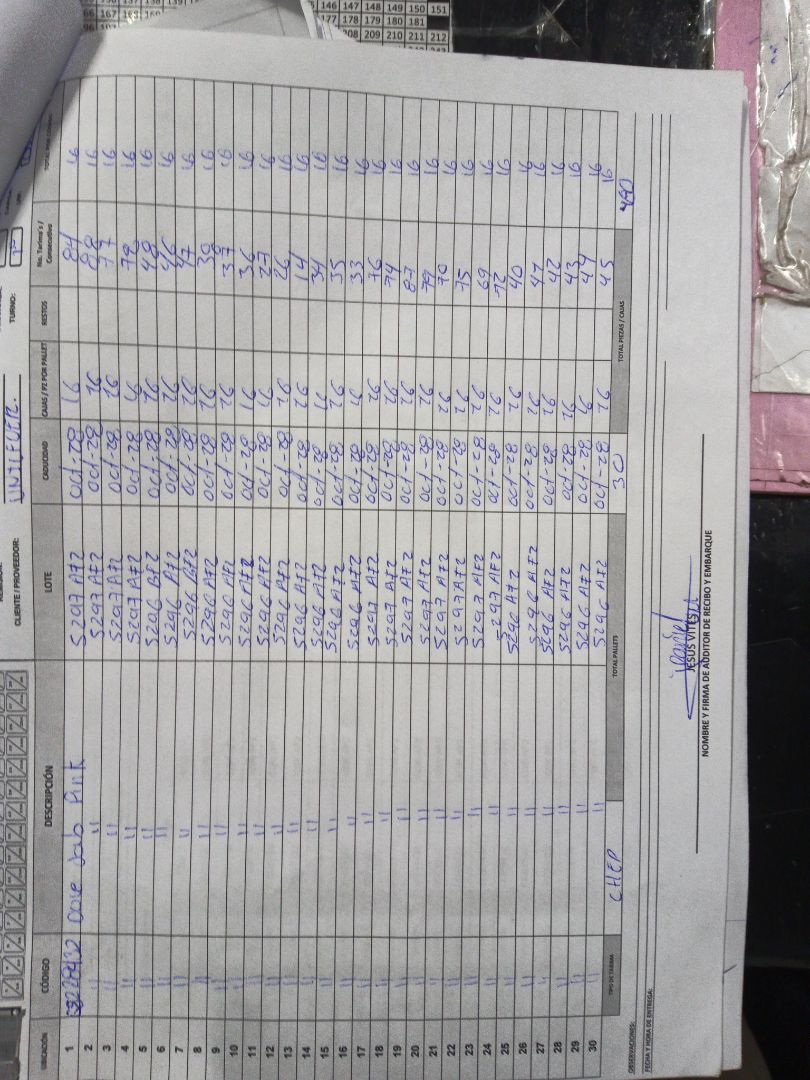 TURNO:
CLIENTE / PROVEEDOR: UNILEVER.
UBICACIÓN CÓDIGO DESCRIPCIÓN LOTE CADUCIDAD CAJAS / PZ POR PALLET RESTOS No. Tarima's / Consecutivo
1 Dove Jab Pink 5297 A72 Oct-28 16 84 16
2 " " 5297 A72 Oct-28 16 88 16
3 " " 5297 A72 Oct-28 16 77 16
4 " " 5297 A72 Oct-28 16 78 16
5 " " 5296 Oct-28 16 48 16
6 " " 5296 A72 Oct-28 16 46 16
7 " " 5296 Oct-28 16 47 16
8 " " 5296 A72 Oct-28 16 38 16
9 " " 5296 A72 Oct-28 16 37 16
10 " " 5296 A72 Oct-28 16 36 16
11 " " 5296 A72 Oct-28 16 27 16
12 " " 5296 A72 Oct-28 16 26 16
13 " " 5296 A72 Oct-28 16 14 16
14 " " 5296 A72 Oct-28 16 34 16
15 " " 5296 A72 Oct-28 16 35 16
16 " " 5296 A72 Oct-28 16 33 16
17 " " 5297 A72 Oct-28 16 76 16
18 " " 5297 A72 Oct-28 16 74 16
19 " " 5297 A72 Oct-28 16 87 16
20 " " 5297 A72 Oct-28 16 79 16
21 " " 5297 A72 Oct-28 16 70 16
22 " " 5297 A72 Oct-28 16 75 16
23 " " 5297 A72 Oct-28 16 69 16
24 " " 5297 A72 Oct-28 16 72 16
25 " " 5296 A72 Oct-28 16 40 16
26 " " 5296 A72 Oct-28 16 41 16
27 " " 5296 A72 Oct-28 16 42 16
28 " " 5296 A72 Oct-28 16 43 16
29 " " 5296 A72 Oct-28 16 44 16
30 " " 5296 A72 Oct-28 16 45 16
TIPO DE TARIMA CHEP TOTAL PALLETS 30 TOTAL PIEZAS / CAJAS 480
OBSERVACIONES:
FECHA Y HORA DE ENTREGA:
JESUS VITE
NOMBRE Y FIRMA DE AUDITOR DE RECIBO Y EMBARQUE